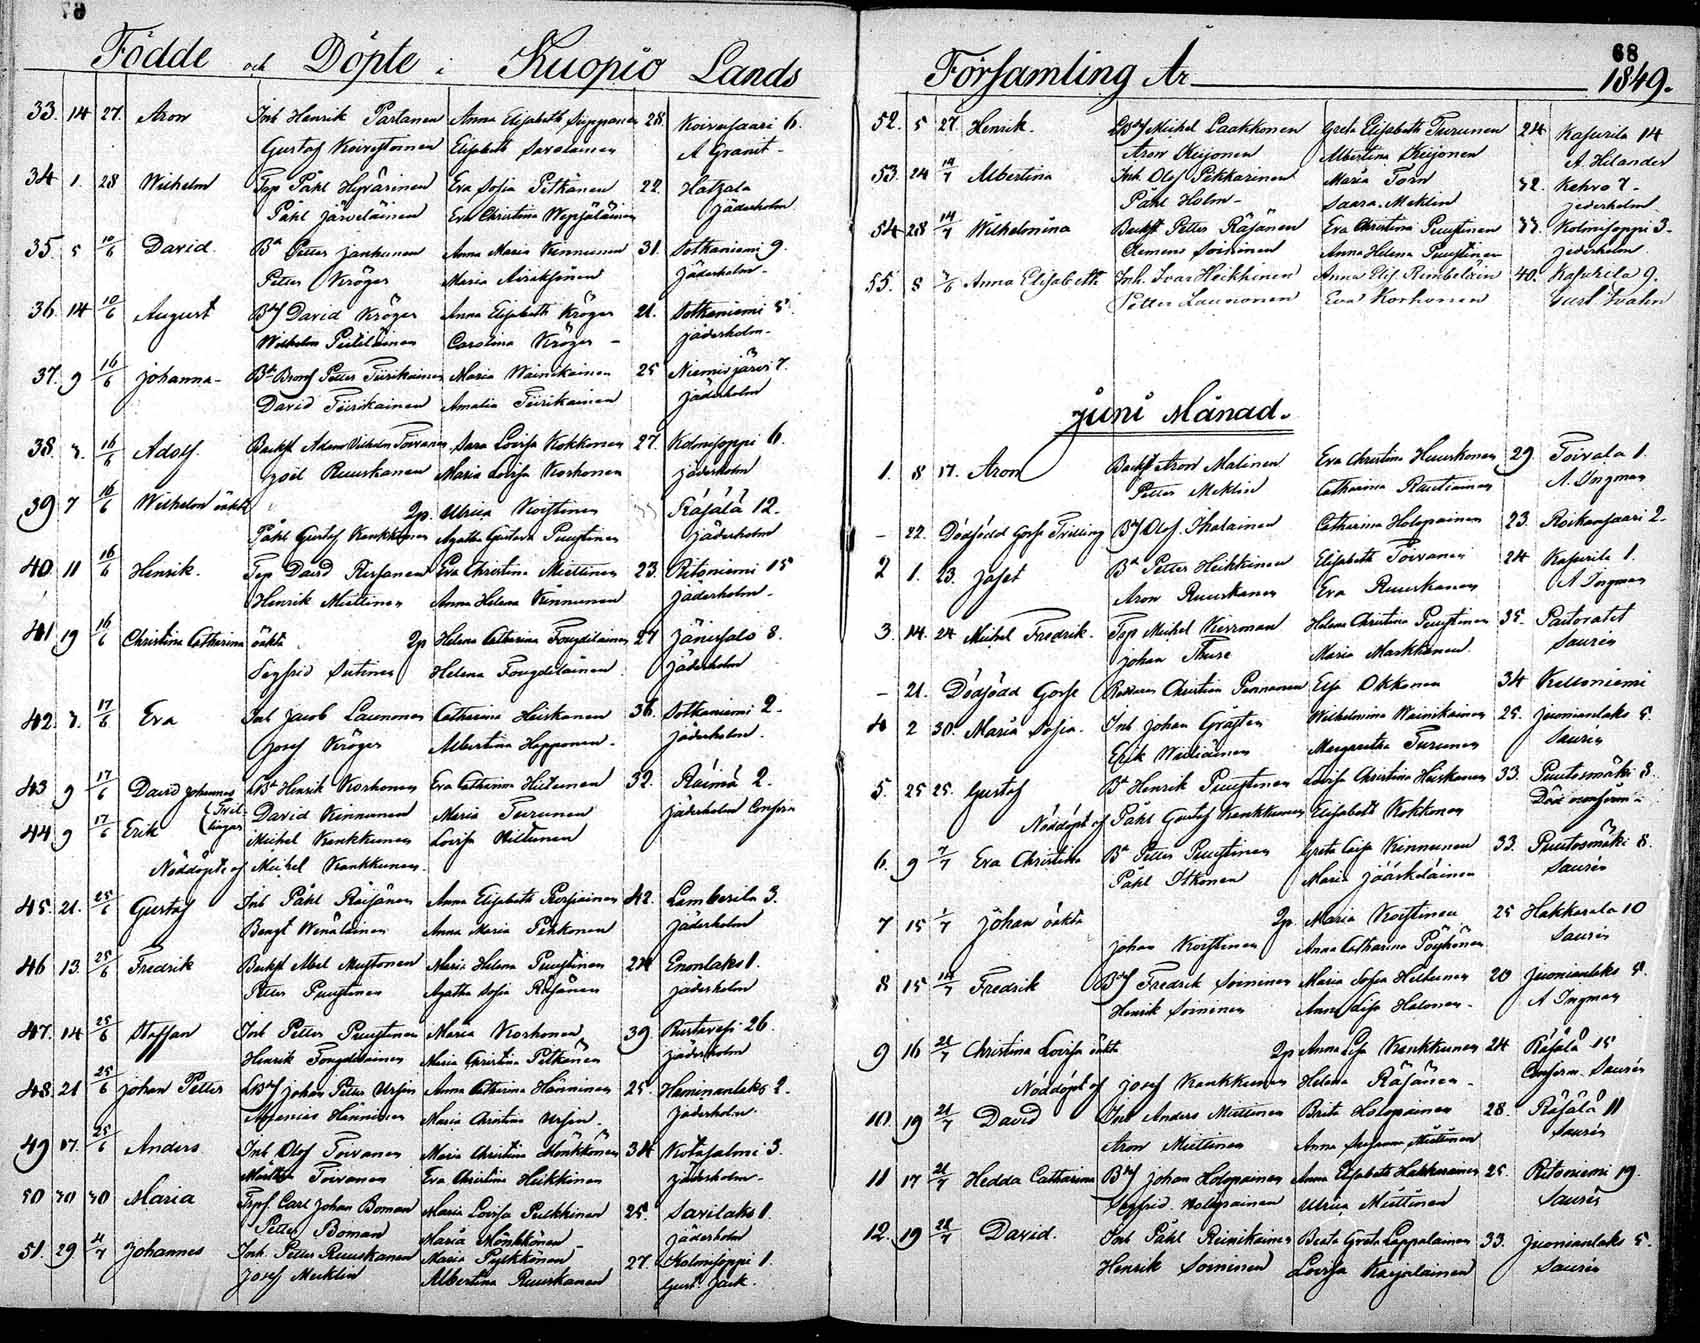 Födde och Döpte i Kuopio Lands
33. 14 27. Aron Inh Henrik Partanen Anna Elisabeth Sirppanen 28. Koivusaari 6.
Gustaf Koivistoinen Elisabeth Savolainen A Granit
34 1. 28 Wilhelm Torp Påhl Hyvärinen Eva Sofia Pitkänen 22. Hatsala
Påhl Järveläinen Eva Christina Jäderholm
35. 5 10/6 David. Bd Petter Janhunen Anna Maria Kinnunen 31. Sotkaniemi 9.
Petter Kröger Maria Airaksinen Jäderholm
36. 14 10/6 August David Kröger Anna Elisabeth Kröger 21. Sotkaniemi 5.
Wilhelm Carolina Kröger – Jäderholm
37. 9 16/6 Johanna – Petter Tiirikainen Maria Wainikainen 25 Niemisjärvi 7.
David Tiirikainen Amalia Tiirikainen Jäderholm
38. 16/6 Adolf. Backst Adam Wilhelm Toivanen Sara Lovisa Kokkonen 27. Kolmisoppi 6
Joel Ruuskanen Maria Lovisa Korhonen Jäderholm
39 7 16/6 Wilhelm oäkta Qp. Ulrica Koistinen Räsälä 12.
Påhl Gustaf Kankkunen Agatha Gustava Puustinen Jäderholm
40. 11 16/6 Henrik. Torp David Eva Christina Miettinen 23. Ritoniemi 15
Henrik Miettinen Anna Helena Kinnunen Jäderholm
41 19 16/6 Christina Catharina oäkta Qp Helena Catharina Fougdilainen 27 Jänissalo 8.
Sigfrid Sutinen Helena Fougdilainen. Jäderholm
42. 17/6 Eva Inh Jacob Launonen Catharina Heiskanen 36. Sotkaniemi 2.
Josef Kröger Albertina Hopponen. Jäderholm.
43 9 17/6 David Johannes Henrik Korhonen Eva Catharina Hiltunen 32. Räimä 2.
Tvillingar David Kinnunen Maria Turunen Jäderholm
44. 9 17/6 Erik Michel Kankkunen Lovisa Hiltunen
Nöddöpte af Michel Kankkunen.
45. 21. 25/6 Gustaf Inh Påhl Räisänen Anna Elisabeth 42. Lamberila 3.
Bengt Wänäläinen Anna Maria Pirkonen Jäderholm
46 13. 25/6 Fredrik Backst Abel Mustonen Maria Helena Puustinen 24 Enonlaks 1.
Petter Puustinen Agatha Sofia Räsänen Jäderholm
47. 14 25/6 Staffan Inh Petter Puustinen Maria Korhonen 39. Puutavesi 26.
Henrik Fougdilainen Maria Christina Pitkänen Jäderholm
48. 21 25/6 Johan Petter Johan Petter Ursin Anna Catharina Hänninen 25. Haminanlaks 2.
Magnus Hänninen Maria Christina Ursin. Jäderholm.
49 17. 25/6 Anders Inh Olof Toivanen Maria Christina Mönkkönen 34 Kotasalmi 3.
Toivanen Eva Christina Heikkinen Jäderholm.
50 30 30 Maria Carl Johan Boman Maria Lovisa Pulkkinen 25. Savilaks 1.
Petter Boman Maria Mönkkönen Jäderholm
51. 29 4/7 Johannes Inh. Petter Ruuskanen Maria Pulkkönen 27. Kolmisoppi 1.
Josef Meklin Albertina Ruuskanen Gust. Jack.
68
Församling År 1849.
52. 5 27 Henrik. Michel Laakkonen Greta Elisabeth Turunen 24 Kasurila 14
Aron Keijonen Albertina Keijonen A. Helander
53. 24 14/7 Albertina Inh. Olof Pekkarinen Maria Torn 32. Kehvo 7.
Påhl Holm – Saara Meklin Jederholm
54 28 14/7 Wilhelmina Backst Petter Räsänen Eva Christina Puustinen 33. Kolmisoppi 3.
Clemens Soininen Anna Helena Puustinen Jederholm.
55. 8 Anna Elisabeth Inh. Ivar Heikkinen Anna Elis. 40. Kasurila 9.
Petter Launonen Eva Korhonen Gust Ivahn
Juni Månad.
1. 8 17. Aron Backst Aron Malinen Eva Christina Huuskonen 29 Toivala 1.
Petter Meklin Catharina Rautiainen A. Ingman
– 22. Dödfödd Gosse Tvilling Olof Ikalainen Catharina Holopainen 23. Roikansaari 2.
2 1. 23. Jafet Bd Petter Heikkinen Elisabeth Toivanen 24 Kasurila 1.
Aron Ruuskanen Eva Ruuskanen A Ingman
3. 14. 24 Michel Fredrik. Torp Michel Helena Christina Puustinen 35. Pastoratet
Johan Thure Maria Markkanen. Saurén
– 21. Dödfödd Gosse Christian Pennanen Elsa Okkonen 34 Kelloniemi
4 2 30. Maria Sofia. Inh Johan Gråsten Wilhelmina Wainikainen 25. Juonianlaks 5.
Erik Margaretha Turunen Saurén
5. 25 25. Gustaf Bd Henrik Puustinen Lovisa Christina Heiskanen 33. Puutosmäki 8.
Nöddöpt af Påhl Gustaf Kankkunen Elisabeth Kokkonen Död
6. 9 7/7 Eva Christina Bd Petter Puustinen Greta Caisa Kinnunen 33. Puutosmäki 8.
Påhl Itkonen Maria Jääskeläinen Saurén
7 15 1/7 Johan oäkta Qp Maria Koistinen 25 Hakkarala 10
Johan Koistinen Anna Catharina Pöyhönen Saurén
8 15 14/7 Fredrik Fredrik Soininen Maria Sofia Hiltunen 20 Juonianlaks 9.
Henrik Soininen Anna Caisa Halonen. A Ingman
9 16 21/7 Christina Lovisa oäkta Qp Anna Lisa Kankkunen 24 Räsälä 15
Nöddöpt af Josef Kankkunen Helena Räsänen. Conferm. Saurén
10. 19 21/7 David Inh Anders Miettinen Brita Holopainen 28. Räsälä 11
Aron Miettinen Anna Susanna Miettinen Saurén
11 17 21/7 Hedda Catharina Johan Holopainen Anna Elisabeth Hakkarainen 25. Ritoniemi 19.
Segfrid Holopainen Ulrica Miettinen Saurén
12. 19 22/7 David. Inh Påhl Reinikainen Beata Greta Lappalainen 33. Juonianlaks 5.
Henrik Soininen Lovisa Karjalainen Saurén